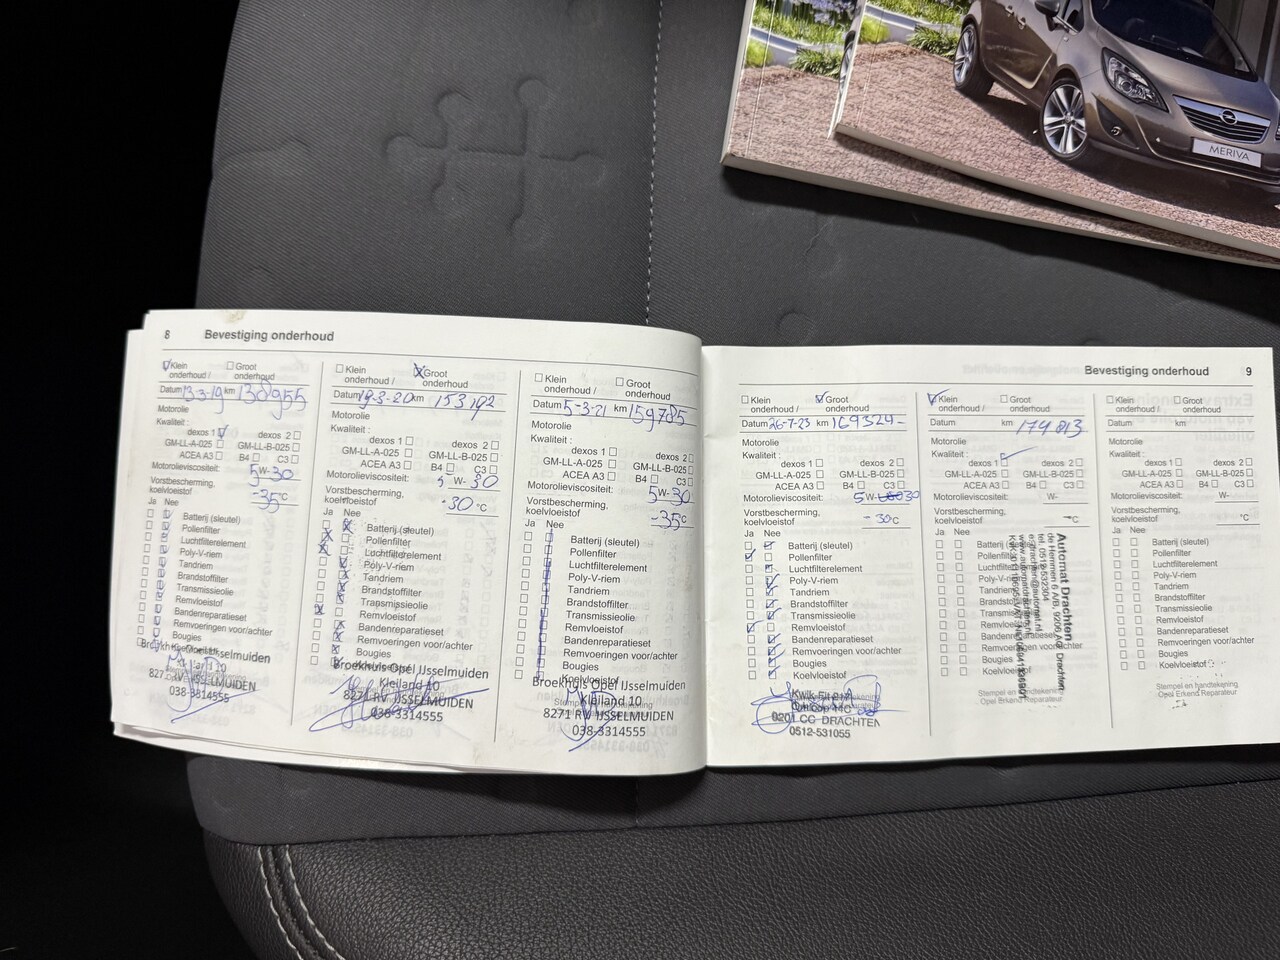 MERIVA
8 Bevestiging onderhoud
Klein onderhoud / Groot onderhoud
Datum 13-3-19 km 138955
Motorolie
Kwaliteit :
dexos 1 dexos 2
GM-LL-A-025 GM-LL-B-025
ACEA A3 B4 C3
Motorolieviscositeit: 5W-30
Vorstbescherming, koelvloeistof -35°C
Ja Nee
Batterij (sleutel)
Pollenfilter
Luchtfilterelement
Poly-V-riem
Tandriem
Brandstoffilter
Transmissieolie
Remvloeistof
Bandenreparatieset
Remvoeringen voor/achter
Bougies
Broekhuis Opel IJsselmuiden
Kleiland 10
8271 RV IJSSELMUIDEN
038-3314555
Klein onderhoud / Groot onderhoud
Datum 19-3-20 km 153192
Motorolie
Kwaliteit :
dexos 1 dexos 2
GM-LL-A-025 GM-LL-B-025
ACEA A3 B4 C3
Motorolieviscositeit: 5 W- 30
Vorstbescherming, koelvloeistof -30 °C
Ja Nee
Batterij (sleutel)
Pollenfilter
Luchtfilterelement
Poly-V-riem
Tandriem
Brandstoffilter
Transmissieolie
Remvloeistof
Bandenreparatieset
Remvoeringen voor/achter
Bougies
Broekhuis Opel IJsselmuiden
Kleiland 10
8271 RV IJSSELMUIDEN
038-3314555
Klein onderhoud / Groot onderhoud
Datum 5-3-21 km 159785
Motorolie
Kwaliteit :
dexos 1 dexos 2
GM-LL-A-025 GM-LL-B-025
ACEA A3 B4 C3
Motorolieviscositeit: 5W-30
Vorstbescherming, koelvloeistof -35°C
Ja Nee
Batterij (sleutel)
Pollenfilter
Luchtfilterelement
Poly-V-riem
Tandriem
Brandstoffilter
Transmissieolie
Remvloeistof
Bandenreparatieset
Remvoeringen voor/achter
Bougies
Koelvloeistof
Broekhuis Opel IJsselmuiden
Kleiland 10
8271 RV IJSSELMUIDEN
038-3314555
Bevestiging onderhoud 9
Klein onderhoud / Groot onderhoud
Datum 26-7-23 km 169324-
Motorolie
Kwaliteit :
dexos 1 dexos 2
GM-LL-A-025 GM-LL-B-025
ACEA A3 B4 C3
Motorolieviscositeit: 5 W- 30
Vorstbescherming, koelvloeistof -30°C
Ja Nee
Batterij (sleutel)
Pollenfilter
Luchtfilterelement
Poly-V-riem
Tandriem
Brandstoffilter
Transmissieolie
Remvloeistof
Bandenreparatieset
Remvoeringen voor/achter
Bougies
Koelvloeistof
Kwik-Fit
9201 CG DRACHTEN
0512-531055
Klein onderhoud / Groot onderhoud
Datum km 174813
Motorolie
Kwaliteit :
dexos 1 dexos 2
GM-LL-A-025 GM-LL-B-025
ACEA A3 B4 C3
Motorolieviscositeit: W-
Vorstbescherming, koelvloeistof °C
Ja Nee
Batterij
Pollenfilter
Luchtfilterelement
Poly-V-riem
Tandriem
Brandstoffilter
Transmissieolie
Remvloeistof
Bandenreparatieset
Remvoeringen voor/achter
Bougies
Koelvloeistof
Automat Drachten
de Hemmen 6 A/B, 9206 AG Drachten
tel. 0512-532304
Stempel en handtekening
Opel Erkend Reparateur
Klein onderhoud / Groot onderhoud
Datum km
Motorolie
Kwaliteit :
dexos 1 dexos 2
GM-LL-A-025 GM-LL-B-025
ACEA A3 B4 C3
Motorolieviscositeit: W-
Vorstbescherming, koelvloeistof °C
Ja Nee
Batterij (sleutel)
Pollenfilter
Luchtfilterelement
Poly-V-riem
Tandriem
Brandstoffilter
Transmissieolie
Remvloeistof
Bandenreparatieset
Remvoeringen voor/achter
Bougies
Koelvloeistof
Stempel en handtekening
Opel Erkend Reparateur